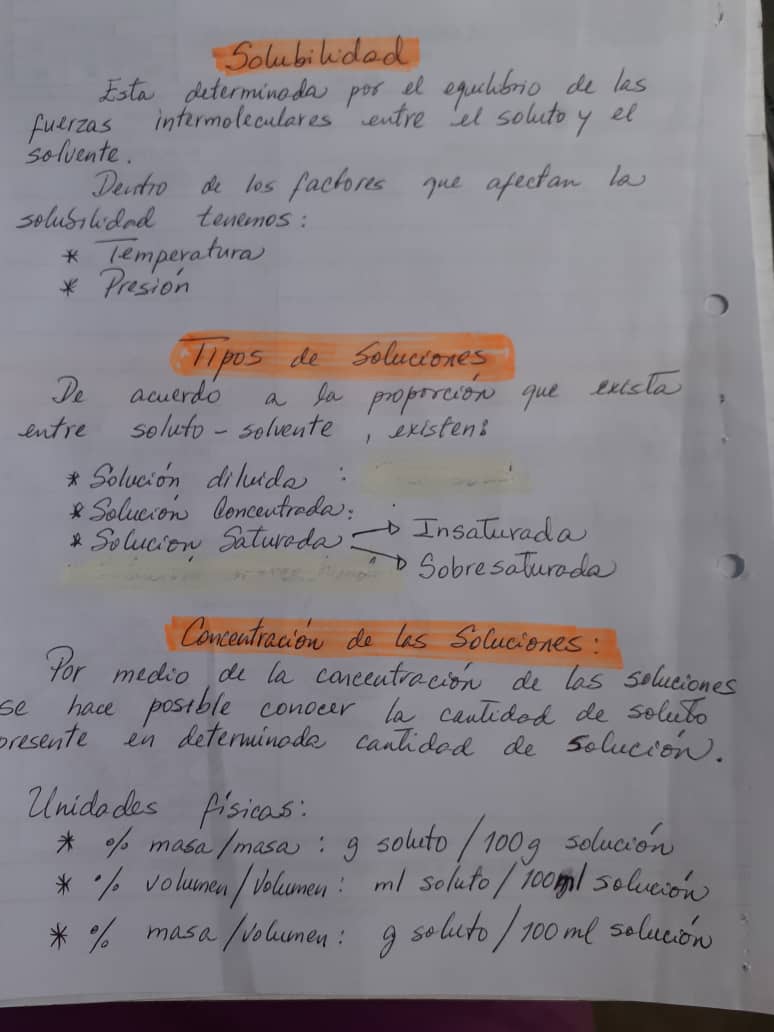 Solubilidad
Esta determinada por el equilibrio de las
fuerzas intermoleculares entre el soluto y el
solvente.
Dentro de los factores que afectan la
solubilidad tenemos:
* Temperatura
* Presión
Tipos de Soluciones
De acuerdo a la proporción que exista,
entre soluto - solvente, existen:
* Solución diluida :
* Solución Concentrada:
* Solucion Saturada → Insaturada
→ Sobresaturada
Concentración de las Soluciones:
Por medio de la concentración de las soluciones
se hace posible conocer la cantidad de soluto
presente en determinada cantidad de solución.
Unidades físicas:
* % masa/masa : g soluto / 100g solución
* % volumen/volumen : ml soluto / 100ml solución
* % masa/volumen : g soluto / 100 ml solución